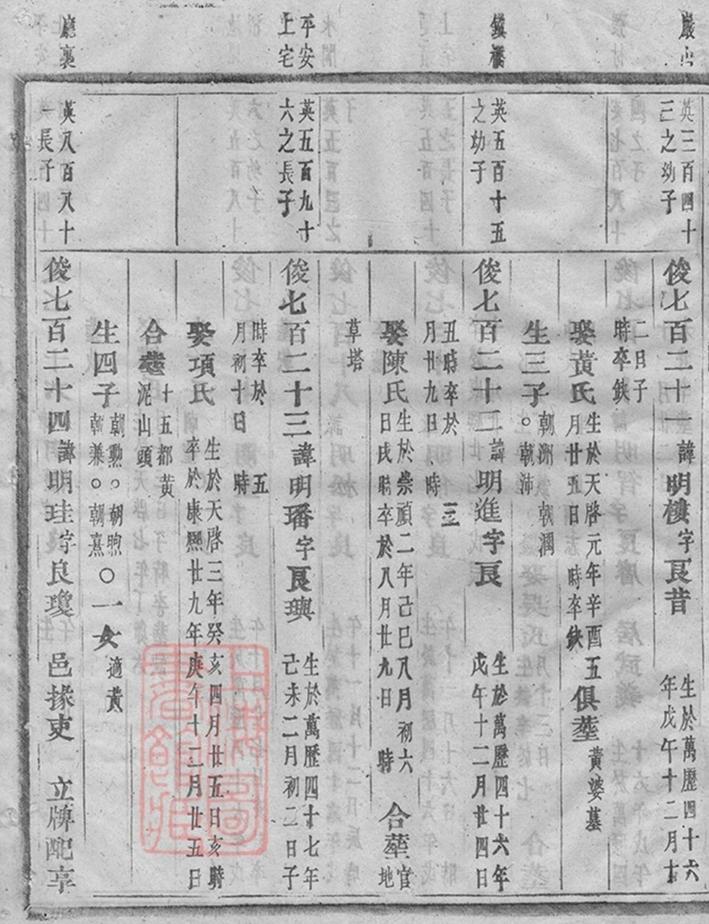 巖山
英三百四十
三之幼子
俊七百二十一諱明樓字良昔
生於萬歷四十六
年戊午十二月十
二日子
時卒缺
娶黃氏
生於天啓元年辛酉五
月廿五日 時卒缺
俱塟
黃婆墓
生三子
朝湖 朝潤
○朝沛
鎮橋
英五百十五
之幼子
俊七百二十二諱明進字良
生於萬歷四十六年
戊午十二月廿四日
丑時卒於 三
月廿九日 時
娶陳氏
生於崇禎二年己巳八月初六
日戌時卒於八月廿九日 時
合塟
官地
草塔
平安
上宅
英五百九十
六之長子
俊七百二十三諱明璠字良璵
生於萬歷四十七年
己未二月初二日子
時卒於 五
月初十日 時
娶項氏
生於天啓三年癸亥四月廿五日亥時
卒於康熙廿九年庚午十二月廿五日
合塟
十五都黃
泥山頭
生四子
朝勲○朝煦
朝兼○朝熹
○一女
適黃
廳裏
英八百八十
長子
俊七百二十四諱明珪字良瓊 邑掾吏 立牌配享